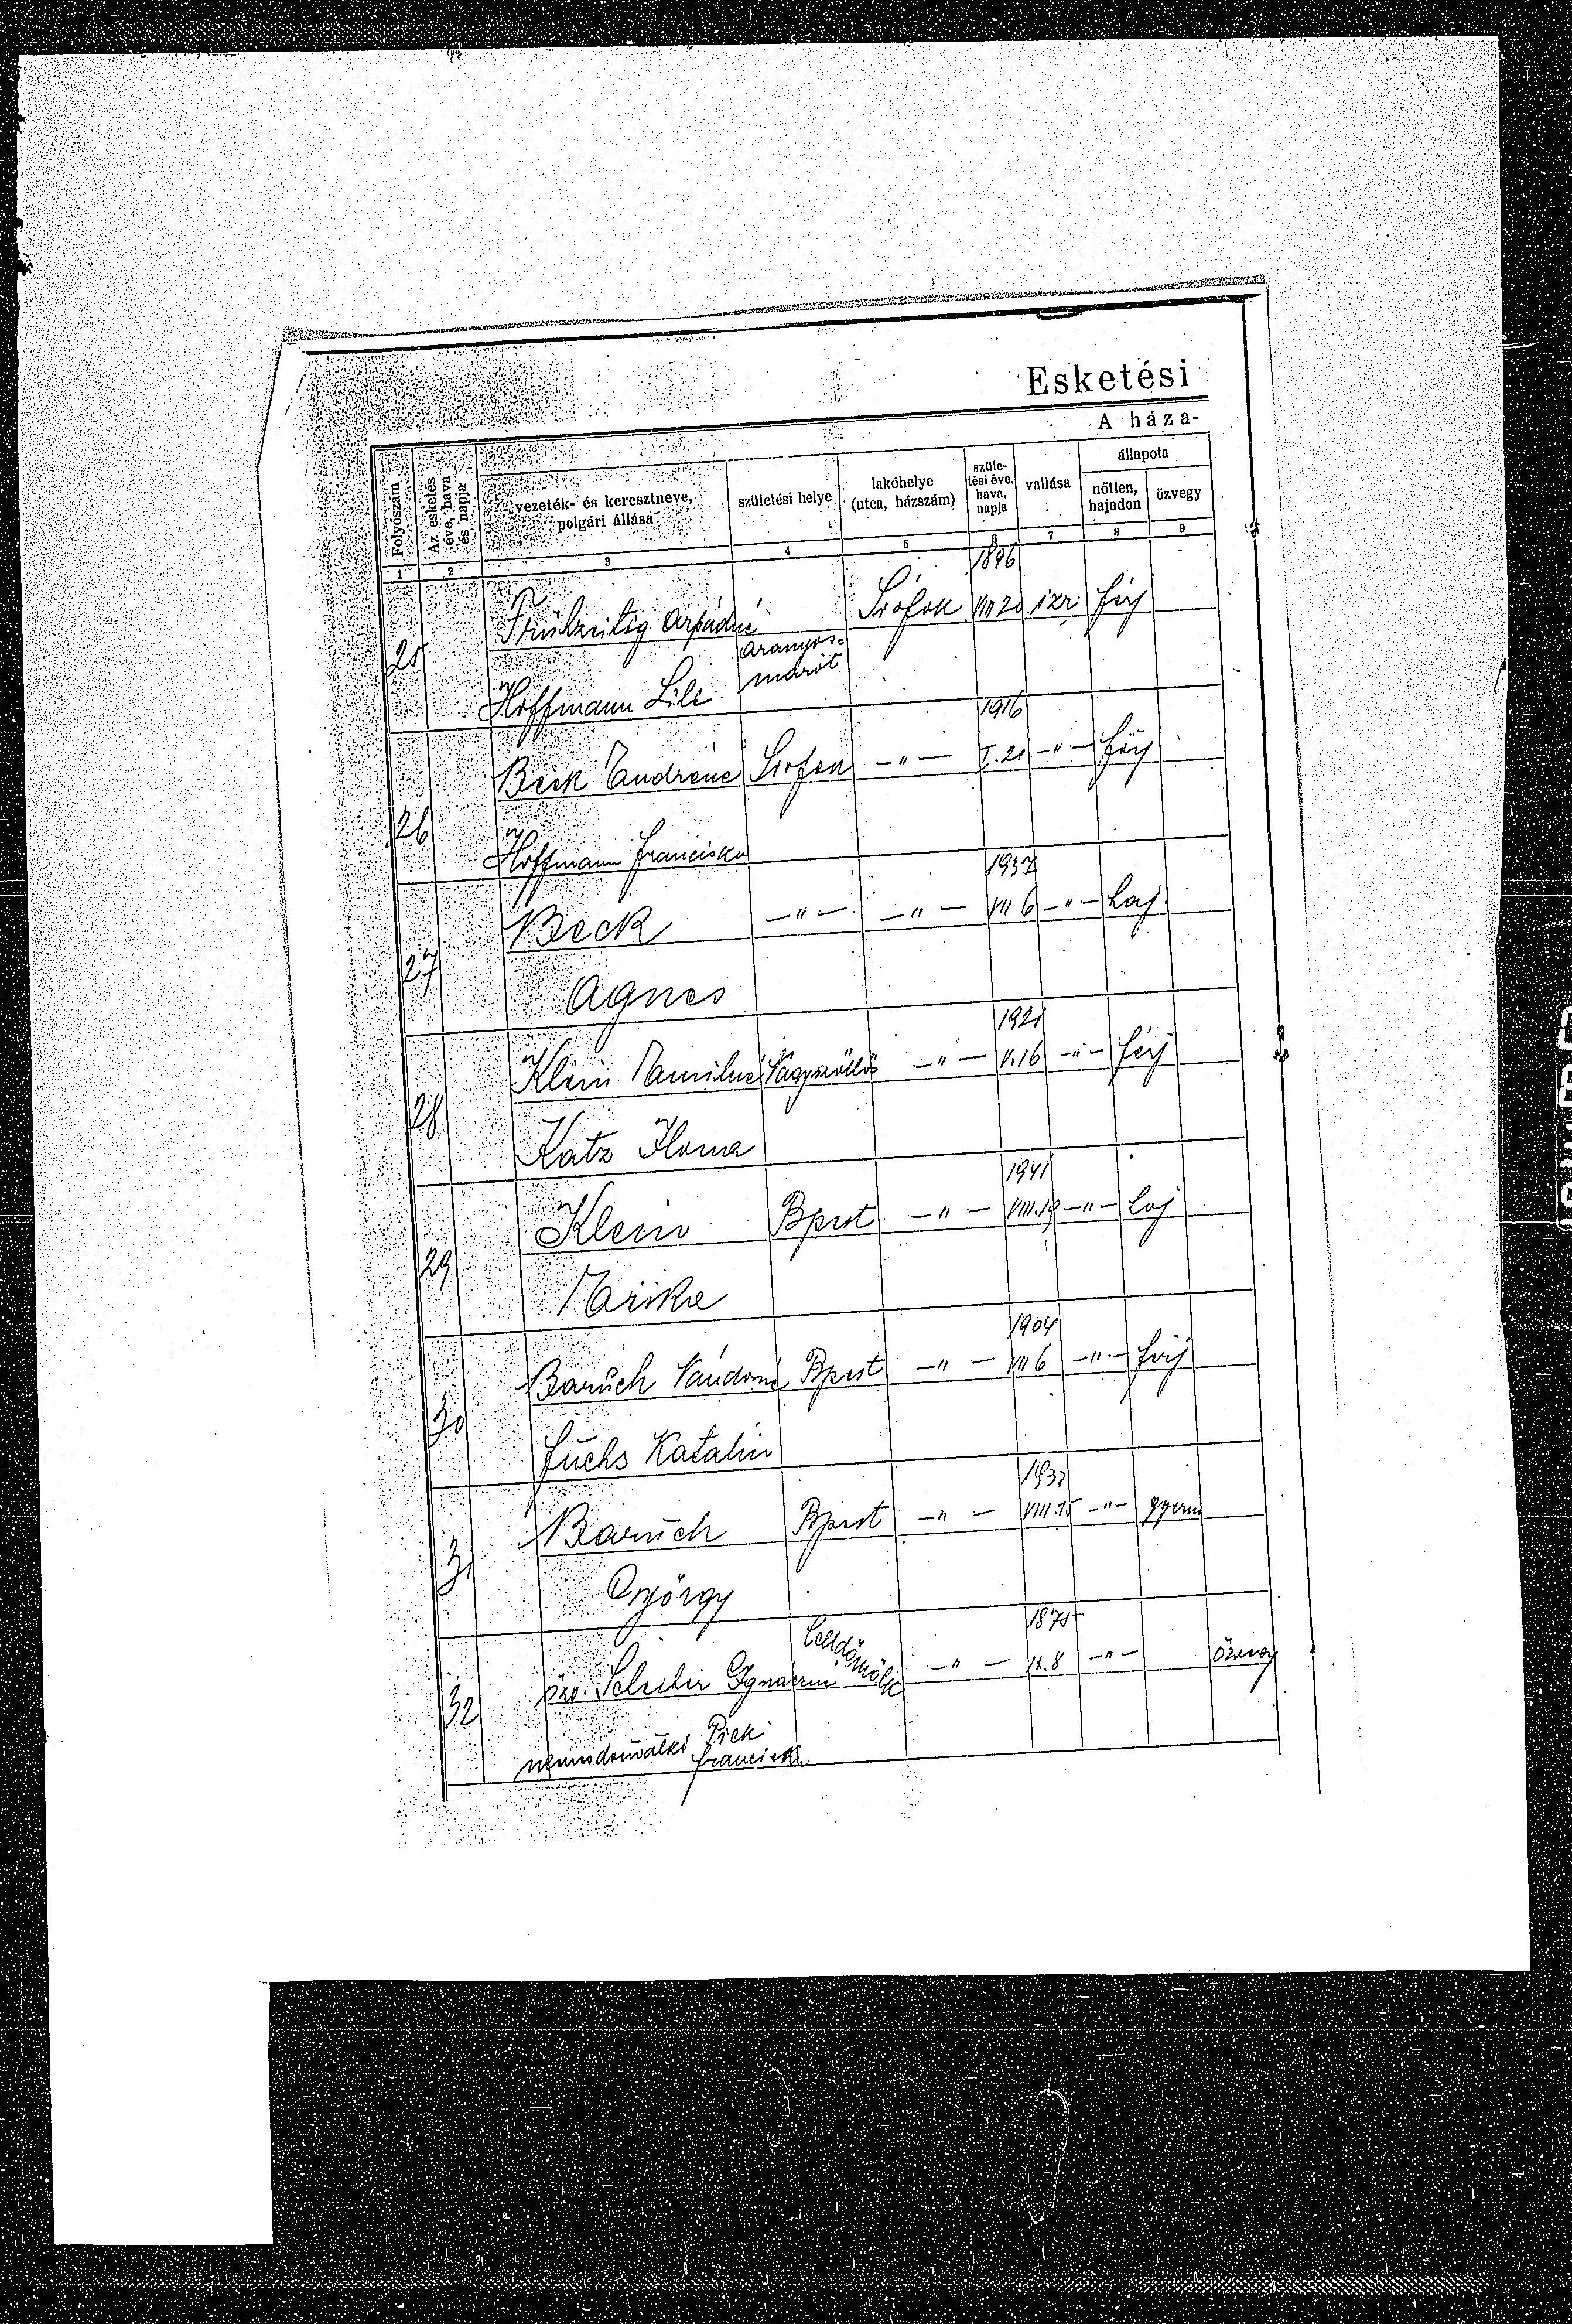 Esketési
A háza-
Folyószám
Az esketés éve, hava és napja
vezeték- és keresztneve, polgári állása
születési helye
lakóhelye (utca, házszám)
születési éve, hava, napja
vallása
állapota
nőtlen, hajadon
özvegy
1 2 3 4 5 6 7 8 9
1896
25 Frühzeitig Árpádné Siófok VIII 20 izr. férj
Aranyos-
marót
Hoffmann Lili
1916
26 Beck Endréné Siófok -"- I.21 -"- férj
Hoffmann Franciska
1937
27 Beck -"- -"- VII 6 -"- haj.
Agnes
1921
28 Klein Nagyszöllös -"- V.16 -"- férj
Katz Ilona
1941
29 Klein Bpest -"- VIII.19 -"- haj
Marika
1904
30 Baruch Nándorné Bpest -"- VII 6 -"- férj
Fuchs Katalin
31 Baruch Bpest -"- VIII.15 -"- gyerm
György
1875
32 özv. Ignácné Celldömölk -"- IX.8 -"- özvegy
Pick
Franciska